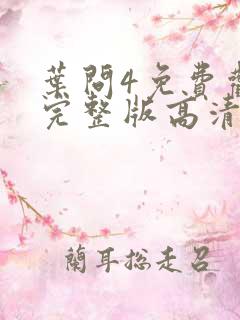 葉問4免費
完整版高清
蘭耳総走召